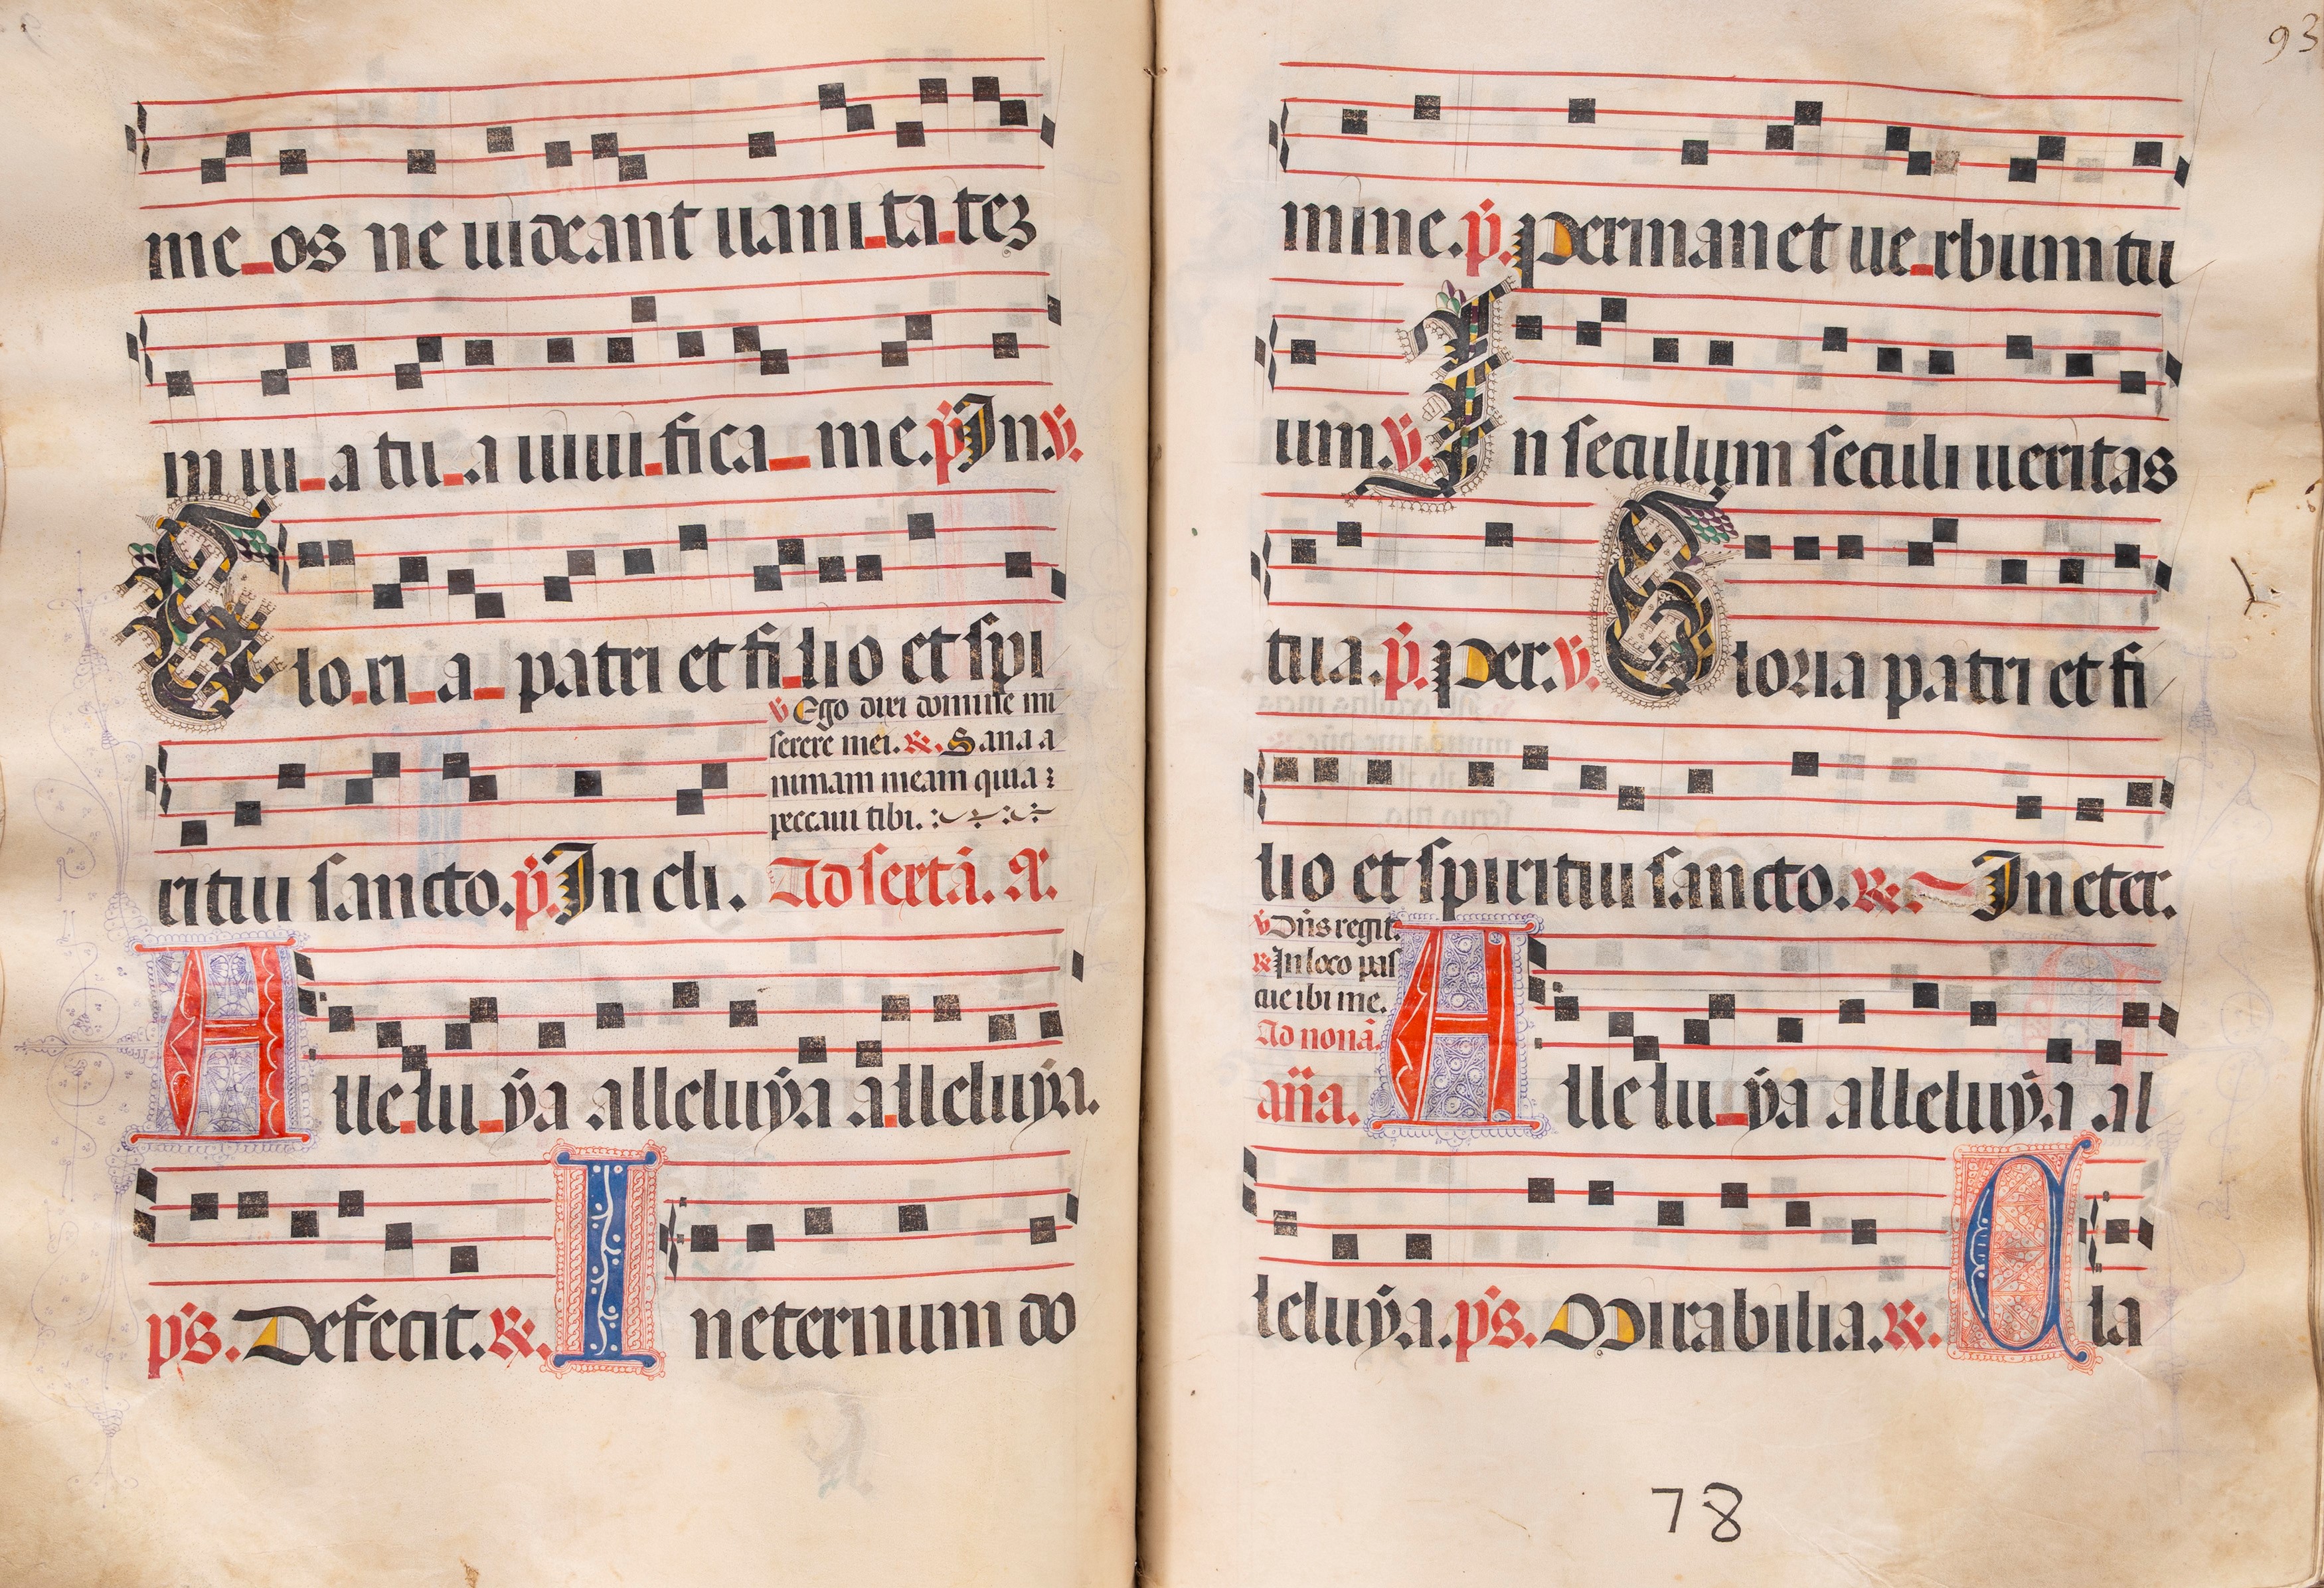 me_os ne uideant uani_ta_teʒ
in ui_a tu_a uiui_fica_me. p̄ In. v̄.
Glo_ri_a_ patri et fi_lio et spi
v̄ Ego dixi domine mi
serere mei. ℟. Sana a
nimam meam quia ⁊
peccaui tibi.
ritui sancto. p̄. In cli. Ad sextā. A.
Alle_lu_ẏa alleluẏa a_lleluẏa.
p̄s. Defecit. ℟. In eternum do
93
mine. p̄. permanet ue_rbum tu
um. v̄. In seculum seculi ueritas
tua. p̄. per. v̄. Gloria patri et fi
lio et spiritui sancto. ℟. In eter.
v̄ Dn̄s regit.
℟ In loco pas
cue ibi me.
Ad nonā.
an̄a. Alle lu_ẏa alleluẏa al
leluẏa. p̄s. Mirabilia. ℟. Cla
78